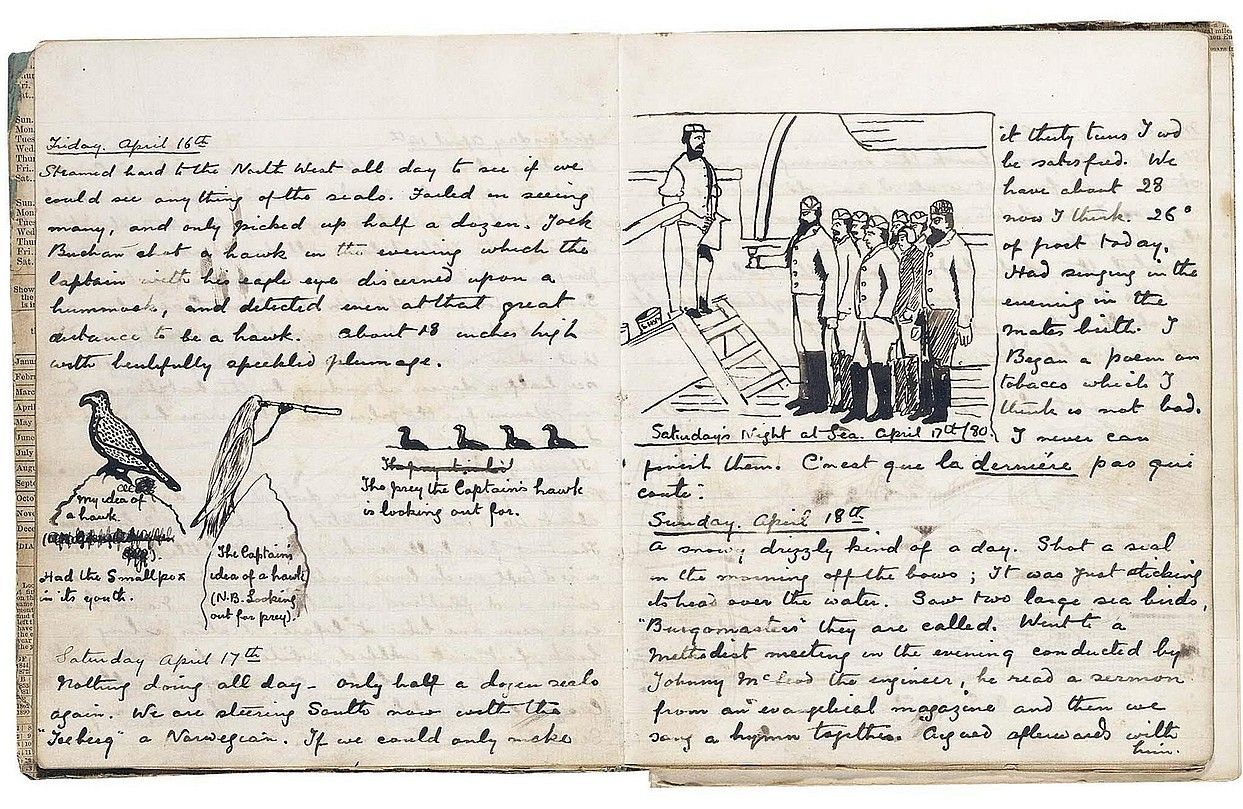 Friday. April 16th
Steamed hard to the North West all day to see if we
could see anything of the seals. Failed in seeing
many, and only picked up half a dozen. Jock
Buchan shot a hawk in the evening which the
Captain with his eagle eye discerned upon a
hummock, and detected even at that great
distance to be a hawk. About 18 inches high
with beutifully speckled plumage.
My idea of
a hawk.
Had the Smallpox
in its youth.
The Captain's
idea of a hawk
(N.B. Looking
out for prey).
The prey the Captain's hawk
is looking out for.
Saturday April 17th
Nothing doing all day - only half a dozen seals
again. We are steering South now with the
"Iceberg" a Norwegian. If we could only make
it thirty tuns I wd
be satisfied. We
have about 28
now I think. 26°
of frost today.
Had singing in the
evening in the
mates birth. I
Began a poem on
tobacco which I
think is not bad.
Saturday's Night at Sea. April 17th/80.
I never can
finish them. C'nest que la derniére pas qui
coute.
Sunday. April 18th
A snowy drizzly kind of a day. Shot a seal
in the morning off the bows; It was just sticking
its head over the water. Saw two large sea birds,
"Burgomasters" they are called. Went to a
Methodist meeting in the evening conducted by
Johnny McLeod the engineer, he read a sermon
from an evangelical magazine and then we
sang a hymn together. Argued afterwards with
him.